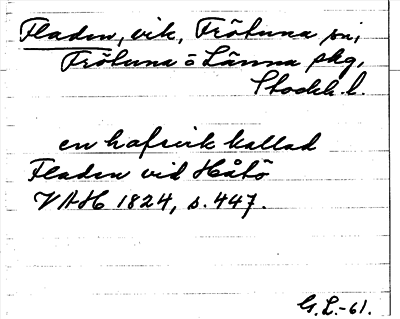 Fladen, vik, Frötuna sn,
Frötuna o Länna skg,
Stockh. l.
en hafsvik kallad
Fladen vid Håtö
VAH 1824, s. 447.
G. L.-61.